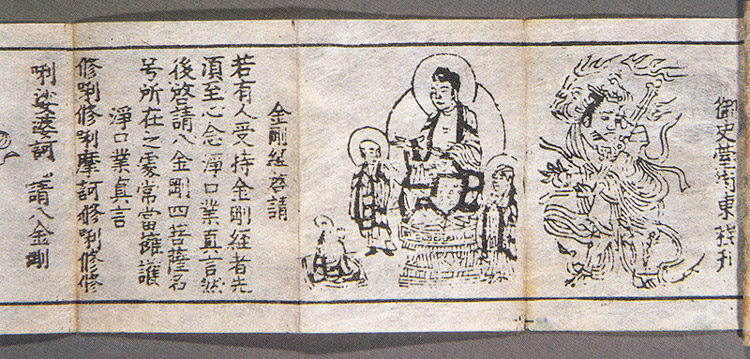 御史臺街東刊
金剛經啓請
若有人受持金剛經者先
須至心念淨口業真言然
後啓請八金剛四菩薩名
号所在之處常當擁護
淨口業真言
修唎修唎摩訶修唎修修
唎娑婆訶 請八金剛